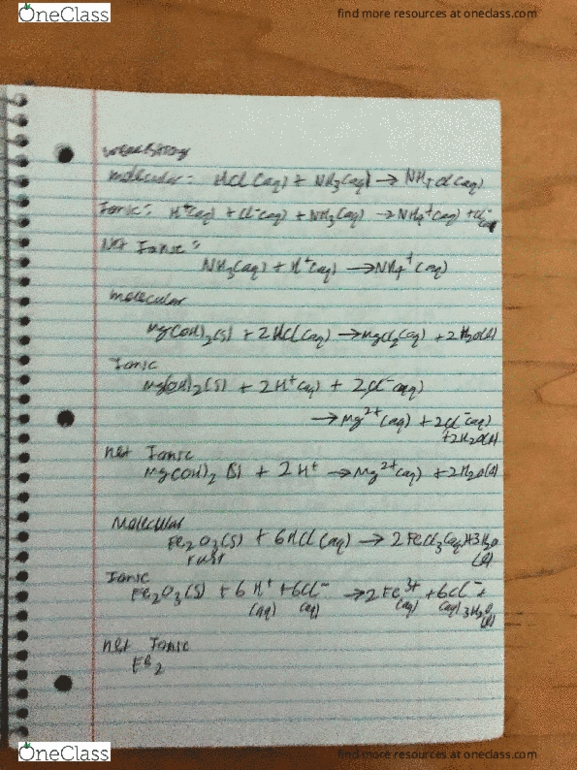 OneClass
find more resources at oneclass.com
molecular: HCl(aq) + NH3(aq) → NH4Cl(aq)
Ionic: H+(aq) + Cl-(aq) + NH3(aq) → NH4+(aq) + Cl-
Net Ionic:
NH3(aq) + H+(aq) → NH4+(aq)
molecular
Mg(OH)2(s) + 2HCl(aq) → MgCl2(aq) + 2H2O(l)
Ionic
Mg(OH)2(s) + 2H+(aq) + 2Cl-(aq)
→ Mg2+(aq) + 2Cl-(aq)
+2H2O(l)
net Ionic
Mg(OH)2(s) + 2H+ → Mg2+(aq) + 2H2O(l)
Molecular
Fe2O3(s) + 6HCl(aq) → 2FeCl3(aq)+3H2O
rust (l)
Ionic
Fe2O3(s) + 6H+ + 6Cl- → 2Fe3+ + 6Cl- +
(aq) (aq) (aq) (aq) 3H2O
(l)
net Ionic
Fe2
OneClass
find more resources at oneclass.com